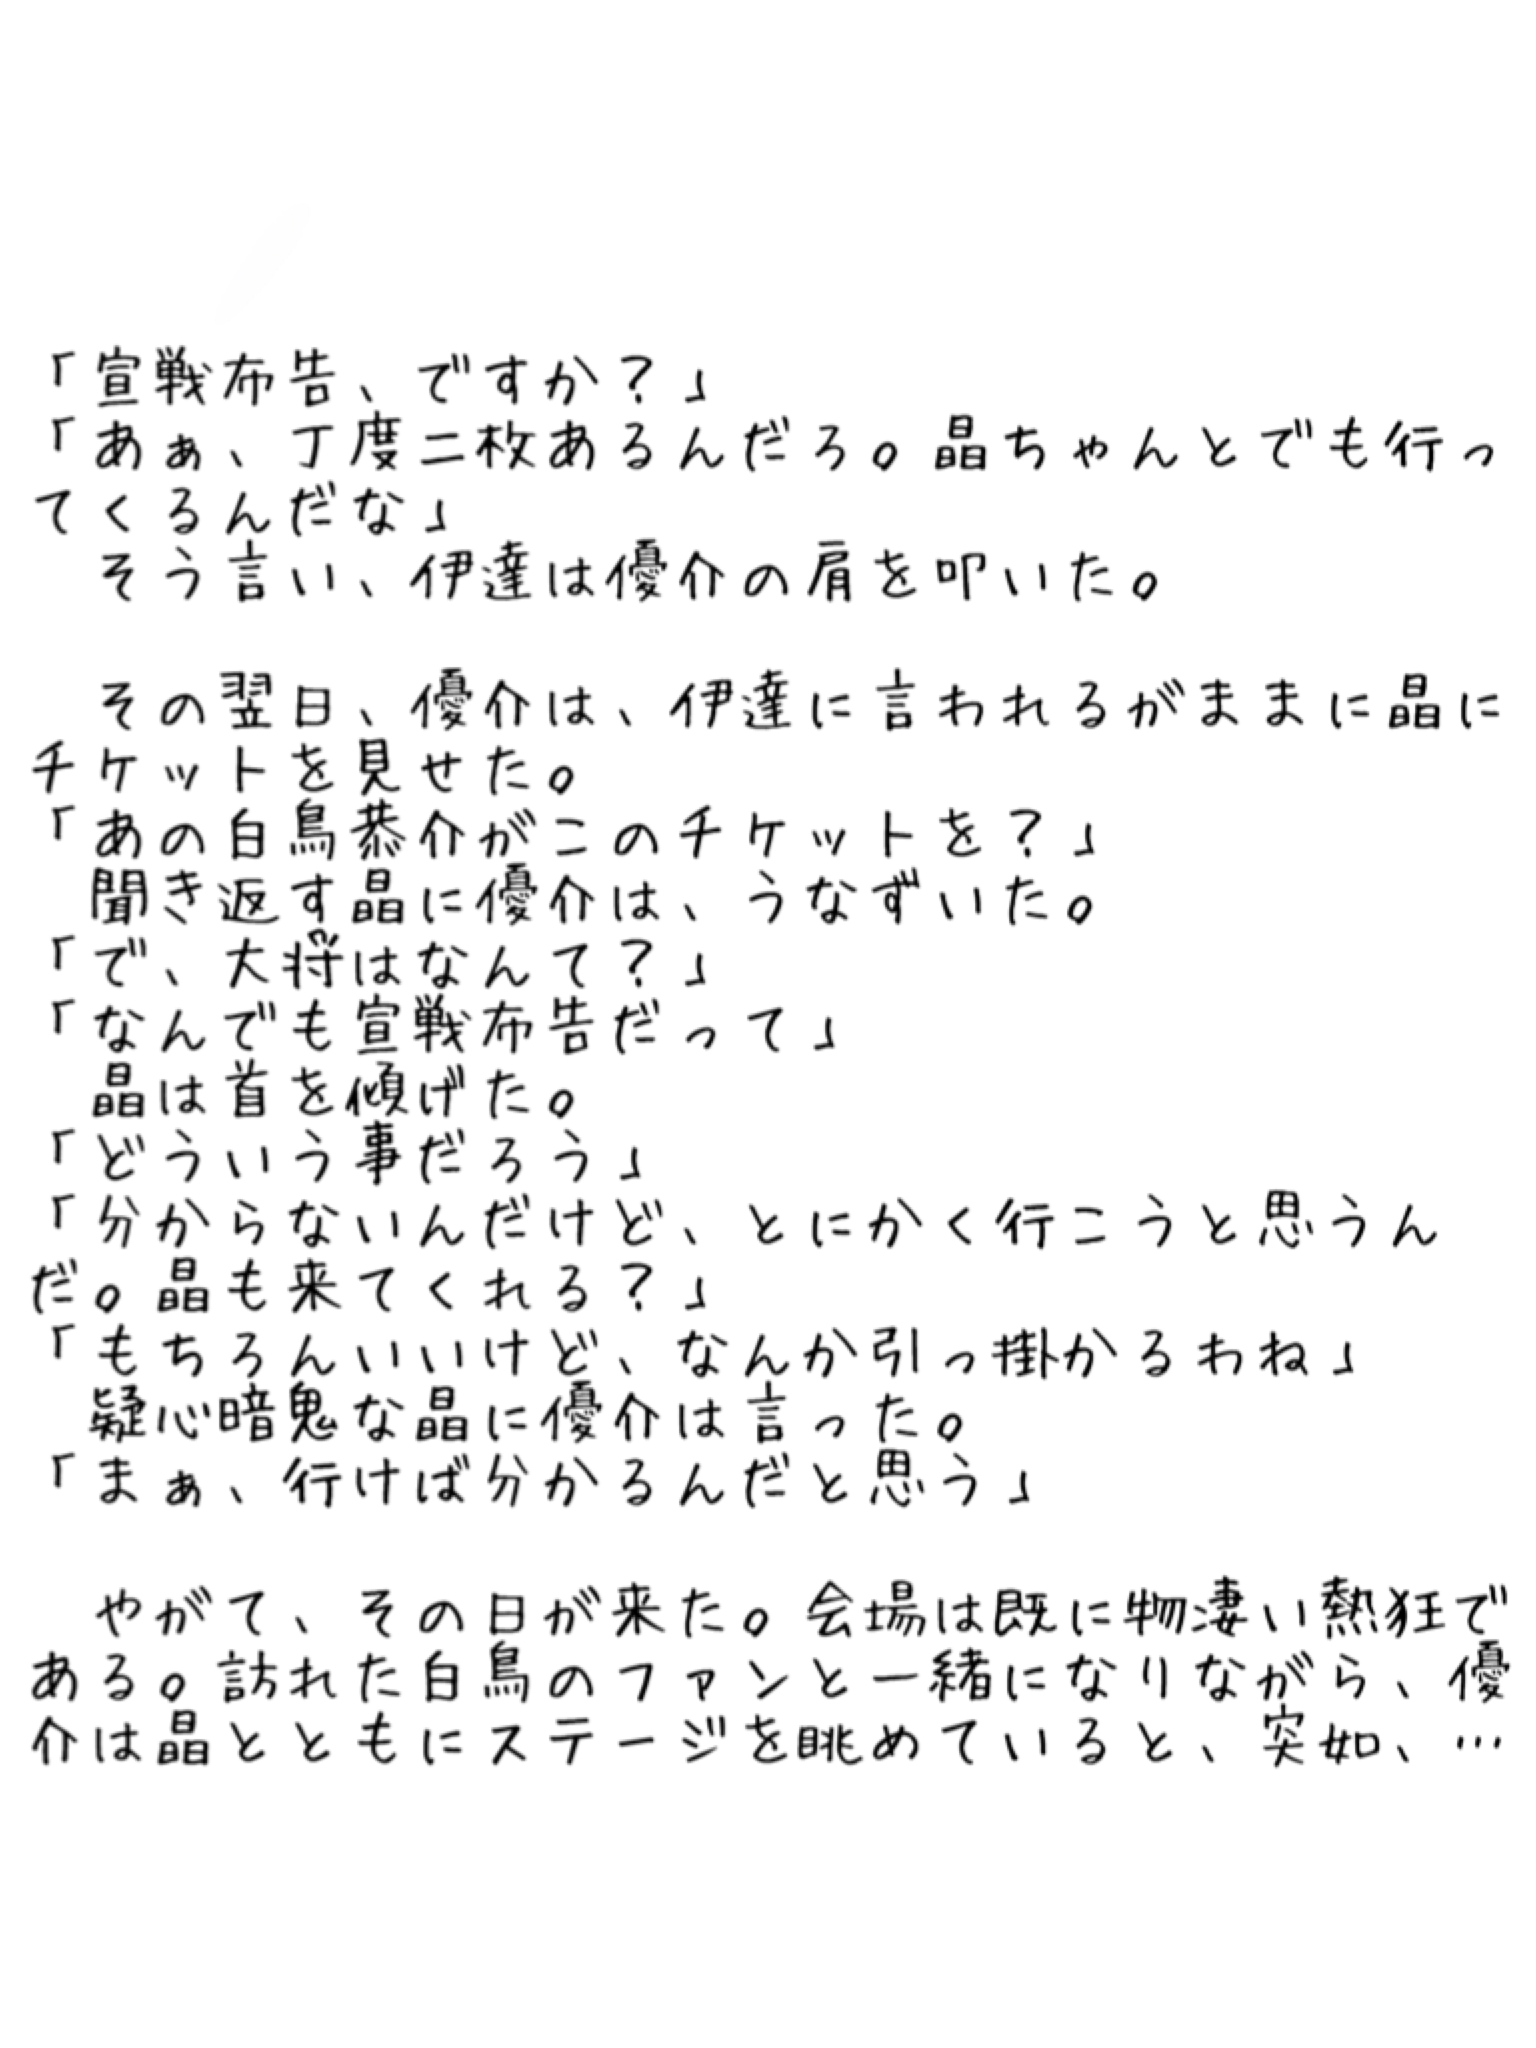 「宣戦布告、ですか？」
「あぁ、丁度二枚あるんだろ。晶ちゃんとでも行っ
てくるんだな」
　そう言い、伊達は優介の肩を叩いた。
　その翌日、優介は、伊達に言われるがままに晶に
チケットを見せた。
「あの白鳥恭介がこのチケットを？」
　聞き返す晶に優介は、うなずいた。
「で、大将はなんて？」
「なんでも宣戦布告だって」
　晶は首を傾げた。
「どういう事だろう」
「分からないんだけど、とにかく行こうと思うん
だ。晶も来てくれる？」
「もちろんいいけど、なんか引っ掛かるわね」
　疑心暗鬼な晶に優介は言った。
「まぁ、行けば分かるんだと思う」
　やがて、その日が来た。会場は既に物凄い熱狂で
ある。訪れた白鳥のファンと一緒になりながら、優
介は晶とともにステージを眺めていると、突如、…